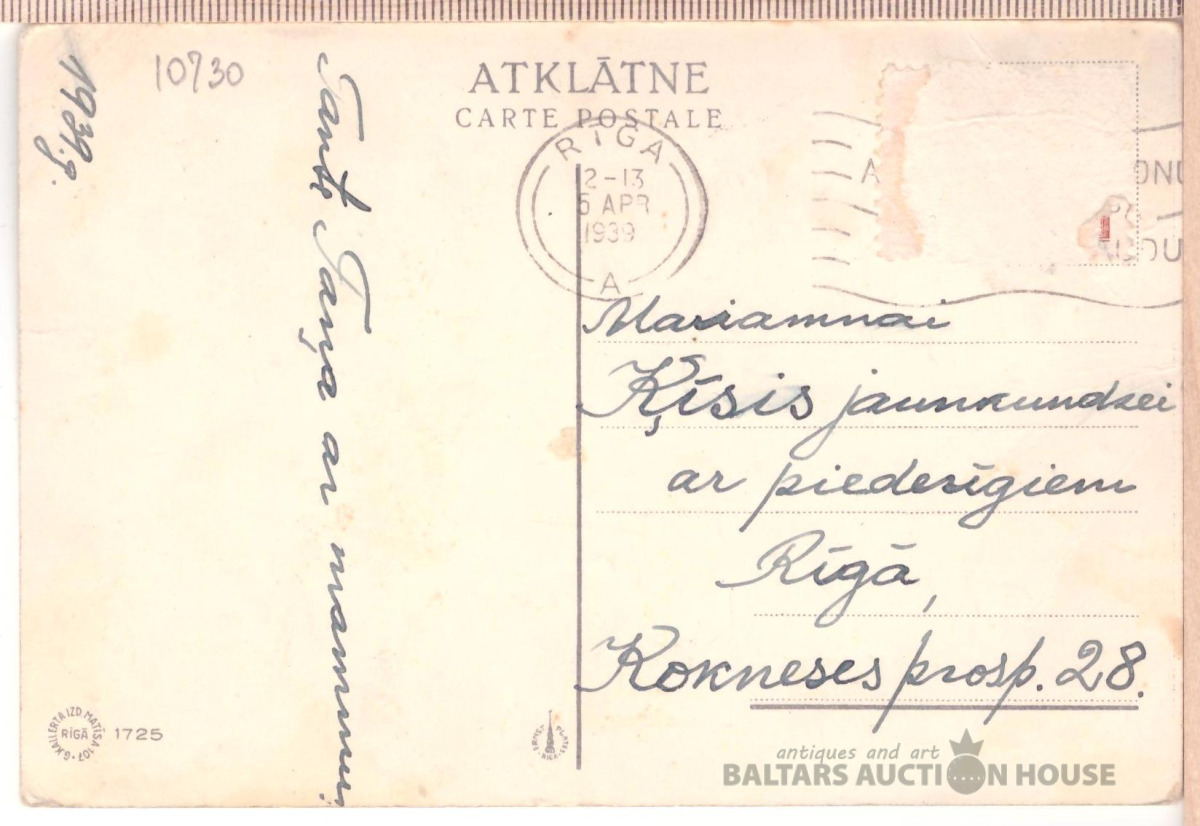 10730
1939.g.
Tante Taņa ar mammu.
ATKLĀTNE
CARTE POSTALE
RĪGA
2-13
5 APR
1939
A
Mariamnai
Ķīsis jaunkundzei
ar piederīgiem
Rīgā,
Kokneses prosp. 28.
G.KALLERTA IZD. MATĪSA 107
RĪGĀ
1725
antiques and art
BALTARS AUCTION HOUSE